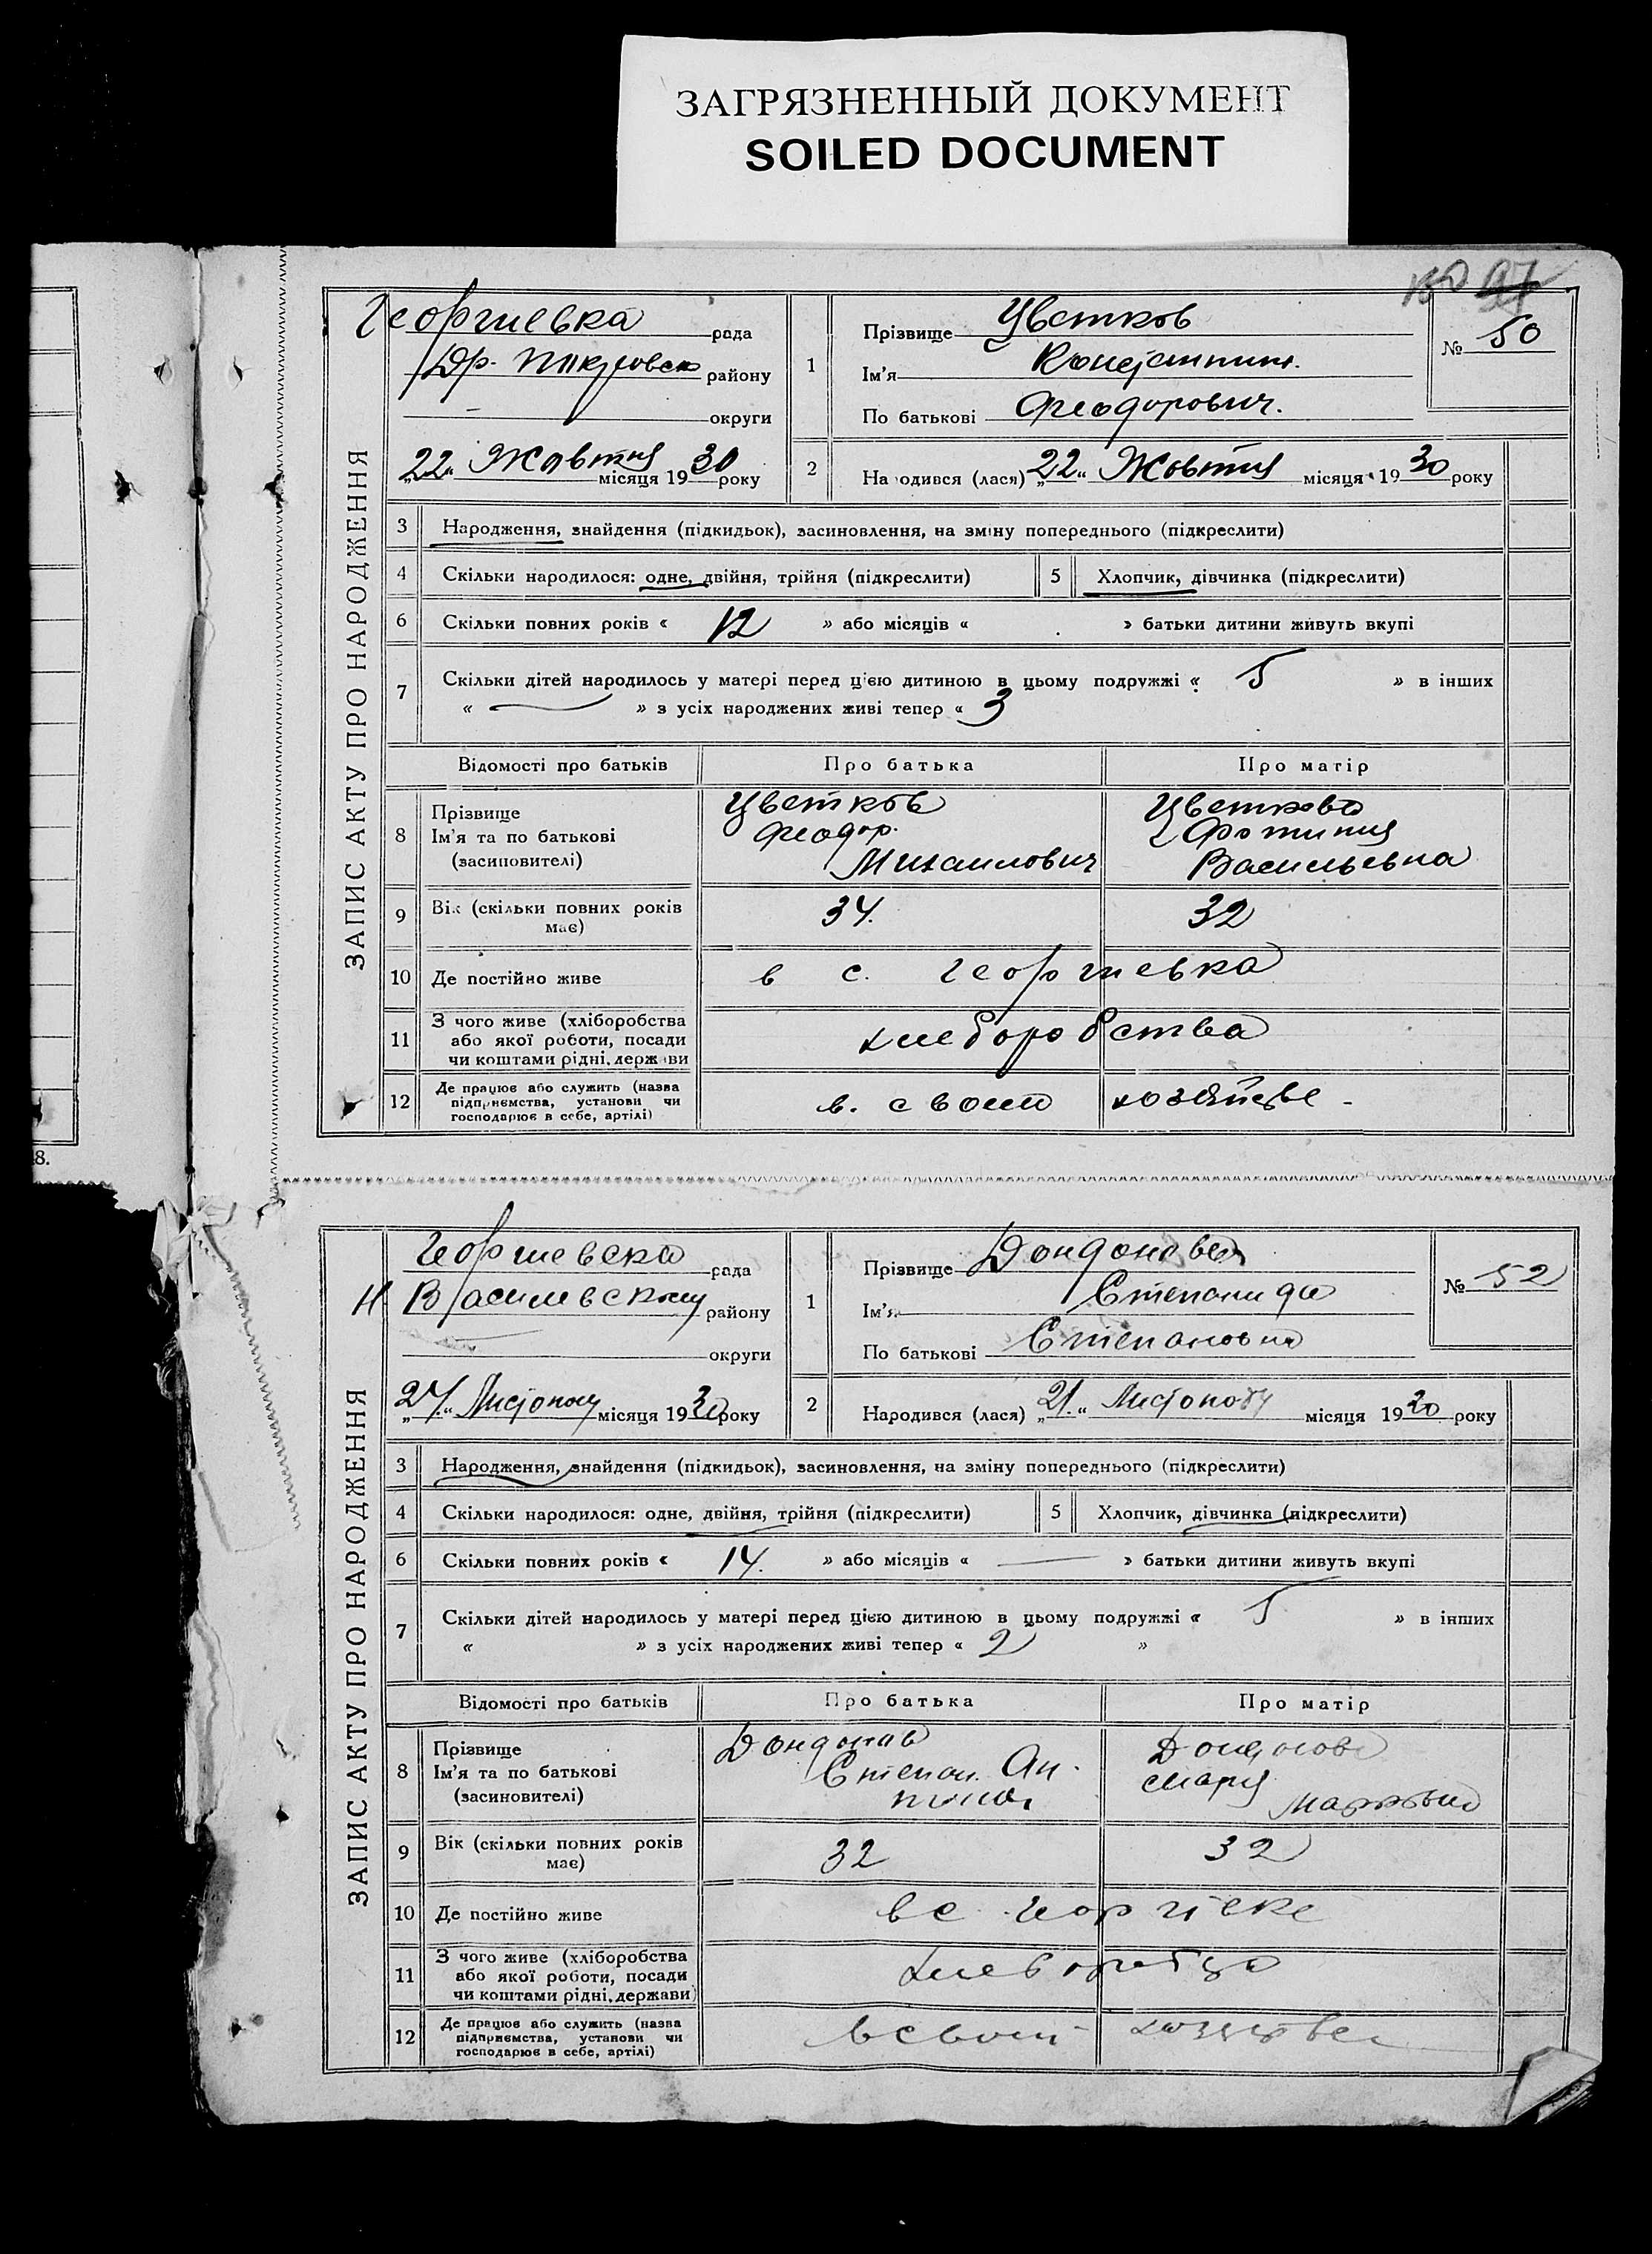 ЗАГРЯЗНЕННЫЙ ДОКУМЕНТ
SOILED DOCUMENT
8.
ЗАПИС АКТУ ПРО НАРОДЖЕННЯ
Георгиевка рада
району
округи
„22“ Жовтня місяця 1930 року
1
Прізвище Цветков
Ім'я Константин.
По батькові Феодорович.
№ 50
2
Народився (лася) „22“ Жовтня місяця 1930 року
3 Народження, знайдення (підкидьок), засиновлення, на зміну попереднього (підкреслити)
4 Скільки народилося: одне, двійня, трійня (підкреслити)
5 Хлопчик, дівчинка (підкреслити)
6 Скільки повних років « 12 » або місяців « » батьки дитини живуть вкупі
7 Скільки дітей народилось у матері перед цією дитиною в цьому подружжі « 5 » в інших
« — » з усіх народжених живі тепер « 3
Відомості про батьків Про батька Про матір
8 Прізвище
Ім'я та по батькові
(засиновителі)
Цветков
Феодор.
Михаилович
Цветкова
Фотиния
Васильевна
9 Вік (скільки повних років має) 34. 32
10 Де постійно живе в с. Георгиевка
11 З чого живе (хліборобства
або якої роботи, посади
чи коштами рідні, держави
хлеборобства
12 Де працює або служить (назва
підприємства, установи чи
господарює в себе, артілі)
в. своем хозяйстве -
ЗАПИС АКТУ ПРО НАРОДЖЕННЯ
Георгиевска рада
Н Василевскому району
округи
„24.“ місяця 1930 року
1
Прізвище
Ім'я Степанида
По батькові Степановна
№ 52
2
Народився (лася) „21.“ місяця 1930 року
3 Народження, знайдення (підкидьок), засиновлення, на зміну попереднього (підкреслити)
4 Скільки народилося: одне, двійня, трійня (підкреслити)
5 Хлопчик, дівчинка (підкреслити)
6 Скільки повних років « 14. » або місяців « — » батьки дитини живуть вкупі
7 Скільки дітей народилось у матері перед цією дитиною в цьому подружжі « 5 » в інших
« » з усіх народжених живі тепер « 2 »
Відомості про батьків Про батька Про матір
8 Прізвище
Ім'я та по батькові
(засиновителі)
Дондонов
Степан. Ан-
Дондонова
Мария
Марковна
9 Вік (скільки повних років має) 32 32
10 Де постійно живе
11 З чого живе (хліборобства
або якої роботи, посади
чи коштами рідні, держави)
12 Де працює або служить (назва
підприємства, установи чи
господарює в себе, артілі)